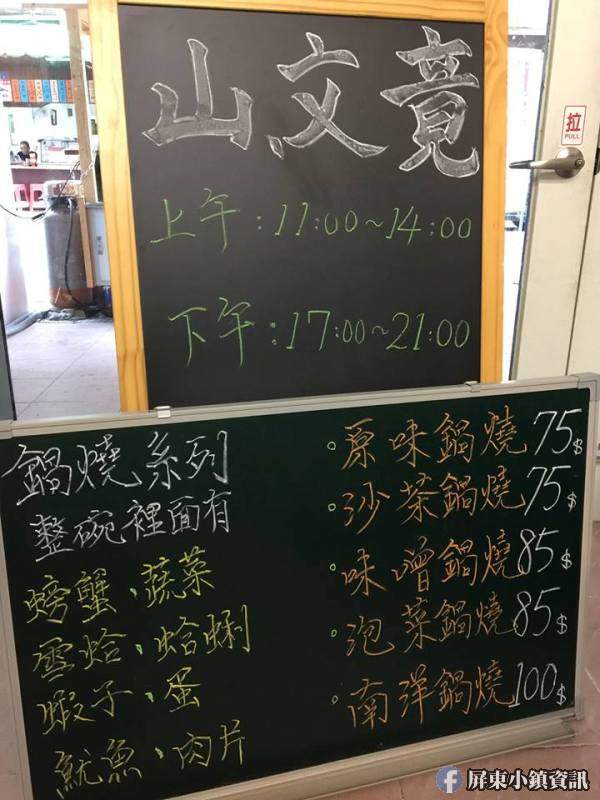 山文竟
上午：11:00~14:00
下午：17:00~21:00
拉
PULL
鍋燒系列
整碗裡面有
螃蟹、蔬菜
雪蛤、蛤蜊
蝦子、蛋
魷魚、肉片
。原味鍋燒75$
。沙茶鍋燒75$
。味噌鍋燒85$
。泡菜鍋燒85$
。南洋鍋燒100$
屏東小鎮資訊